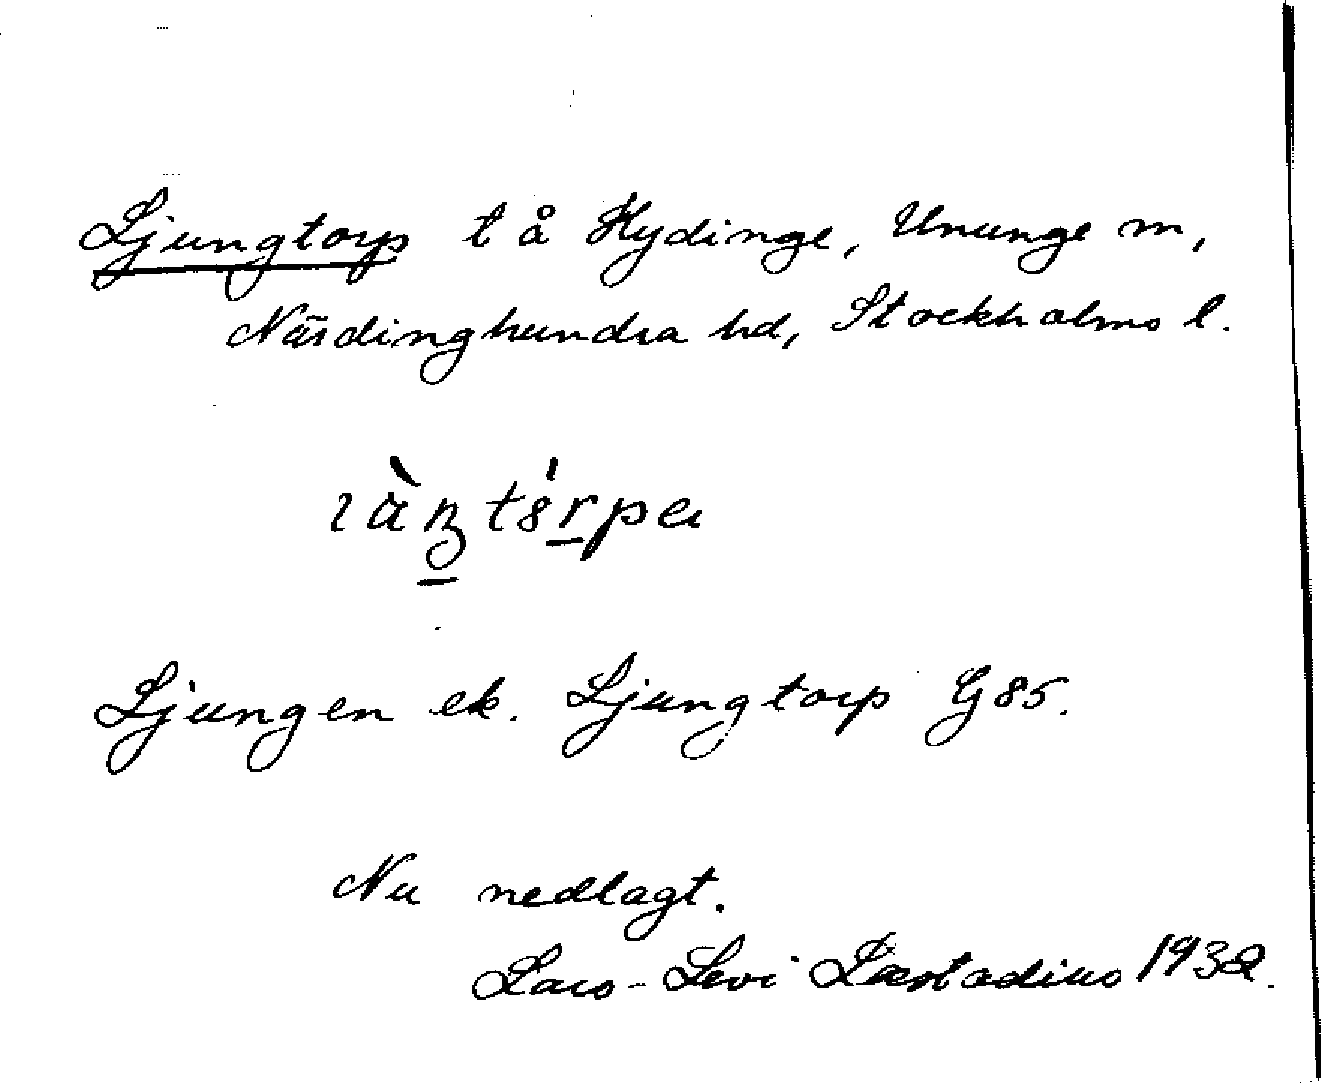 Ljungtorp t å Kydinge, Ununge sn,
Närdinghundra hd, Stockholms l.
Ljungen ek. Ljungtorp G 85.
Nu nedlagt.
Lars-Levi Læstadius 1932.